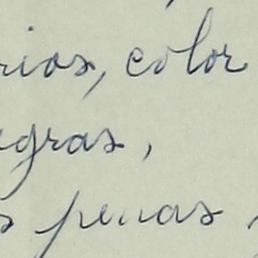 rios, color
egras,
s penas